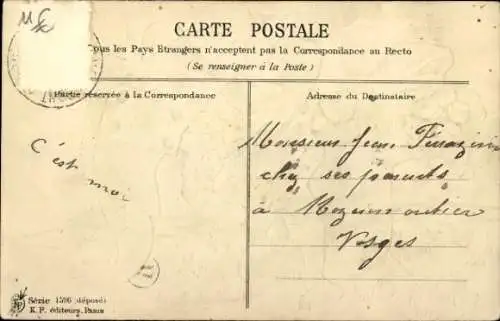 CARTE POSTALE
Tous les Pays Etrangers n'acceptent pas la Correspondance au Recto
(Se renseigner à la Poste)
Partie réservée à la Correspondance
Adresse du Destinataire
C'est moi
Monsieur Jean
chez ses parents
à
Vosges
Série 1596 (déposé)
K. F. éditeurs, Paris